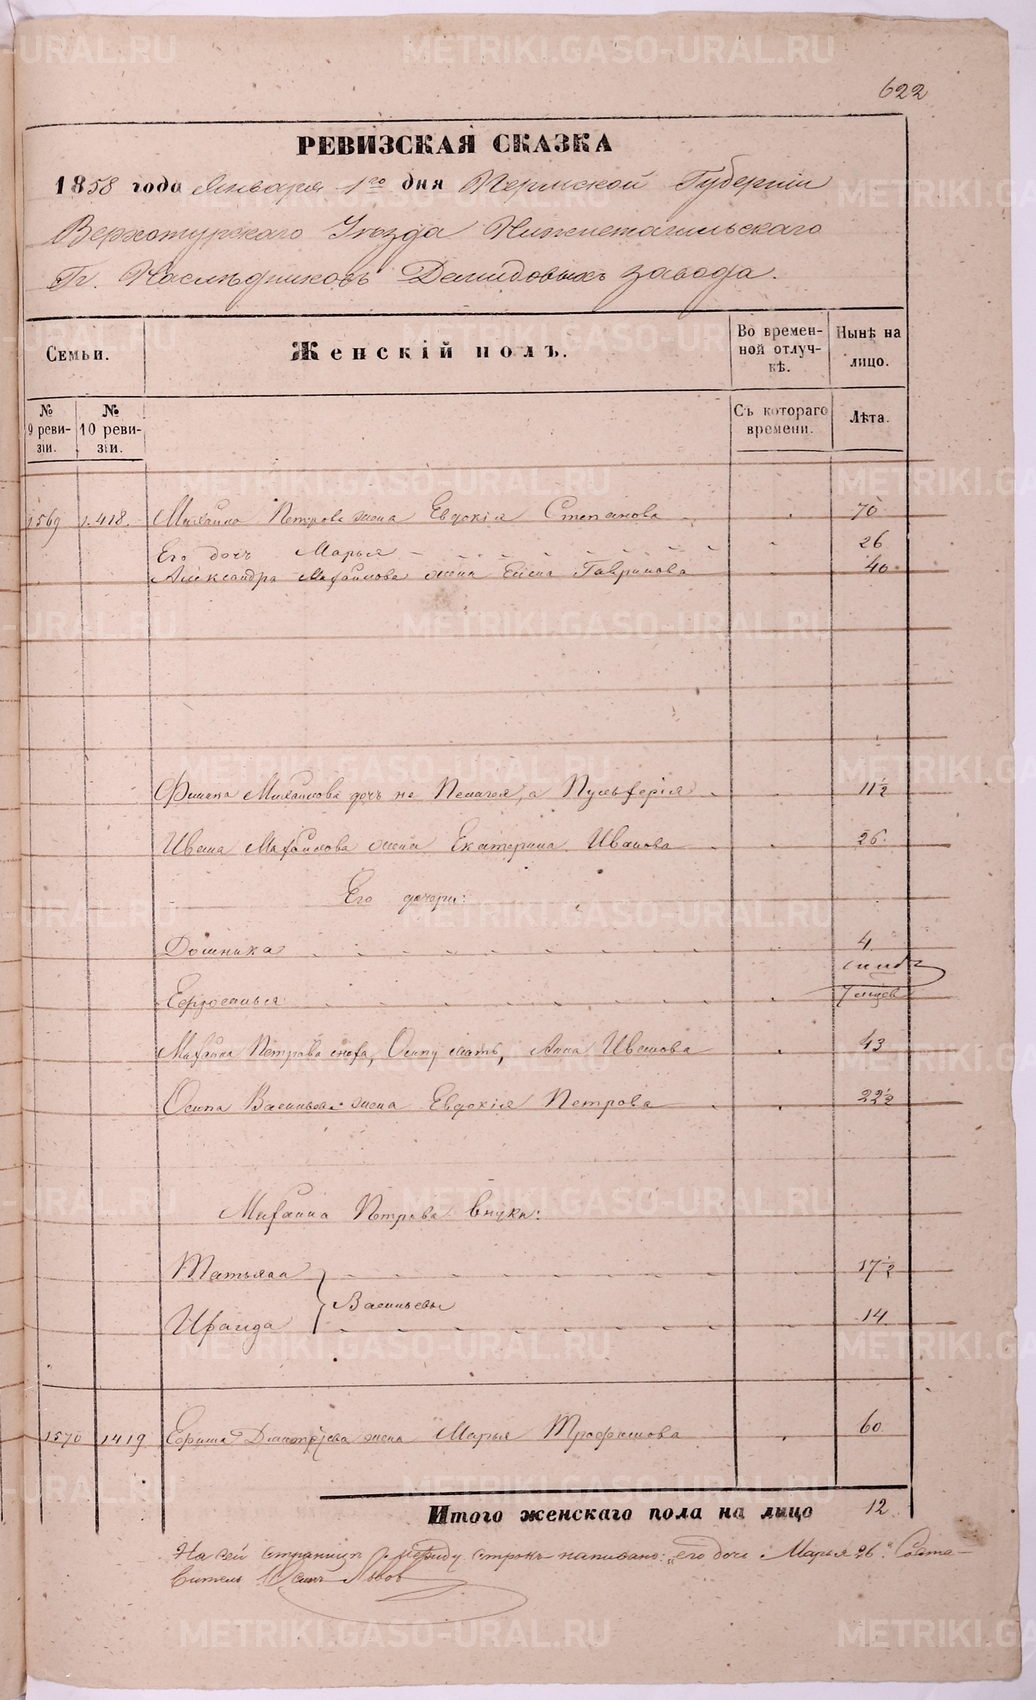 622
РЕВИЗСКАЯ СКАЗКА
1858 года Января 1го дня Пермской Губернiи
Верхотурскаго Уѣзда Нижнетагильскаго
Гг. Наслѣдниковъ Демидовыхъ завода.
Семьи. Женскiй полъ. Во времен-ной отлуч-кѣ. Нынѣ на лицо.
№ 9 реви-зiи. № 10 реви-зiи. Съ котораго времени. Лѣта.
1569 1.418. Михайла Петрова жена Евдокiя Степанова 70
Его дочь Марья 26
Александра Михайлова жена Елена Гаврилова 40
Михайлова дочь не Пелагея, а Пульферiя 11½
Ивана Михайлова жена Екатерина Иванова 26
Его дочери:
Домника 4
7 мцев
Михайла Петрова сноха, Осипу мать, Анна Иванова 43
Осипа Васильева жена Евдокiя Петрова 22½
Михайла Петрова внуки:
Татьяна 17½
Васильевы
Ираида 14
1570 1419 Ефима Дмитрiева жена Марья Трофимова 60
Итого женскаго пола на лицо 12
На сей страницѣ между строкъ написано: „его дочь Марья 26." Соста-
витель
METRIKI.GASO-URAL.RU